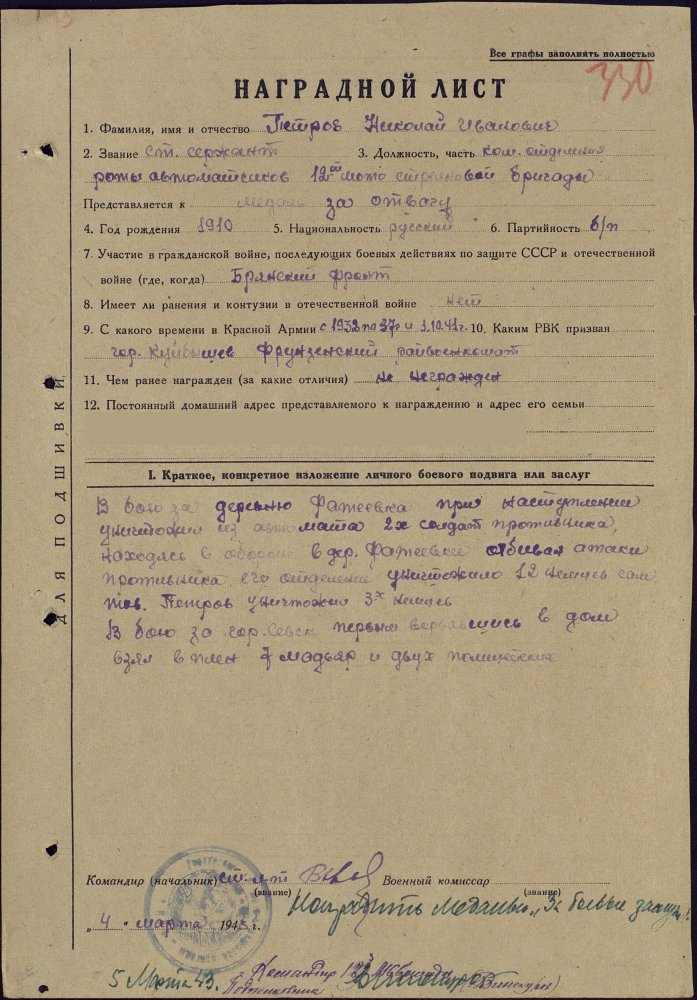 Все графы заполнять полностью
330
НАГРАДНОЙ ЛИСТ
1. Фамилия, имя и отчество Петров Николай Иванович
2. Звание ст. сержант 3. Должность, часть ком. отделения
роты автоматчиков 12ой мото стрелковой бригады
Представляется к медаль за отвагу
4. Год рождения 1910 5. Национальность русский 6. Партийность б/п
7. Участие в гражданской войне, последующих боевых действиях по защите СССР и отечественной
войне (где, когда) Брянский фронт
8. Имеет ли ранения и контузии в отечественной войне нет
9. С какого времени в Красной Армии с 1932 по 37г и 1.10.41г. 10. Каким РВК призван
гор. Куйбышев Фрунзенский райвоенкомат
11. Чем ранее награжден (за какие отличия) не награжден
12. Постоянный домашний адрес представляемого к награждению и адрес его семьи
I. Краткое, конкретное изложение личного боевого подвига или заслуг
В бою за деревню Фатеевка при наступлении
уничтожил из автомата 2х солдат противника,
находясь в обороне в дер. Фатеевке отбивая атаки
противника его отделение уничтожило 12 немцев сам
тов. Петров уничтожил 3х немцев
В бою за гор. Севск первым ворвавшись в дом
взял в плен 7 мадьяр и двух полицейских
ДЛЯ ПОДШИВКИ
Командир (начальник) ст. л-т Военный комиссар
(звание) (звание)
Наградить Медалью „За боевые заслуги"
„4" марта 1943 г.
5 Марта 43. Командир 12й МСбригады
Подполковник